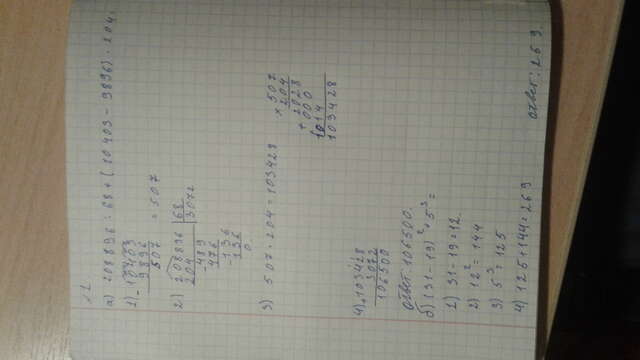 №1
а) 208896 : 68 + (10403 - 9896) · 204
1) 10403
- 9896
507 = 507
2) 208896 | 68
204 3072
- 489
476
- 136
136
0
3) 507 · 204 = 103428
× 507
204
+ 2028
000
1014
103428
4) + 103428
3072
106500
ответ: 106500.
б) (31 - 19)² + 5³ =
1) 31 - 19 = 12
2) 12² = 144
3) 5³ = 125
4) 125 + 144 = 269
ответ: 269.